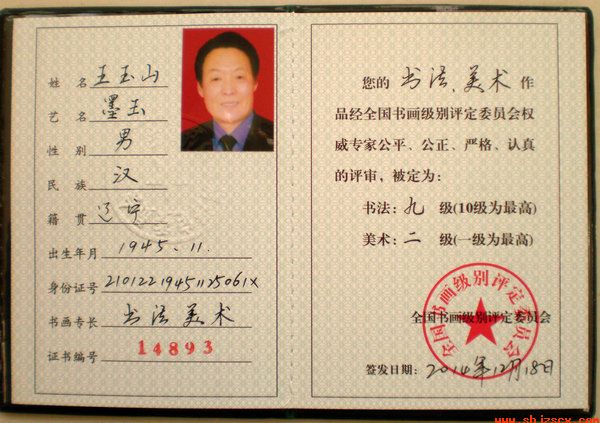 姓 名 王玉山
艺 名 墨玉
性 别 男
民 族 汉
籍 贯 辽宁
出生年月 1945.11.
身份证号 21012219451125061X
书画专长 书法美术
证书编号 14893
您的 书法、美术 作
品经全国书画级别评定委员会权
威专家公平、公正、严格、认真
的评审，被定为：
书法：九 级(10级为最高)
美术：二 级(一级为最高)
全国书画级别评定委员会
全国书画级别评定委员会
签发日期：2014年12月18日
www.shjzscx.com